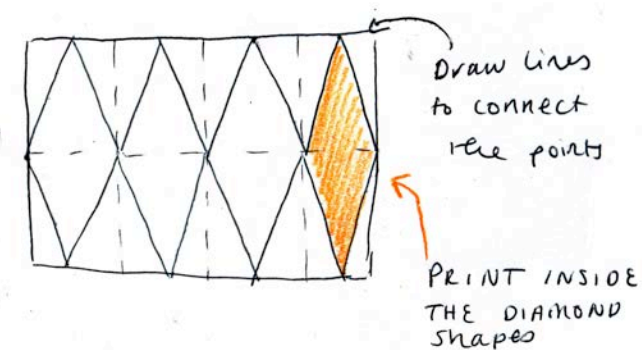 Draw lines
to connect
the points
PRINT INSIDE
THE DIAMOND
shapes